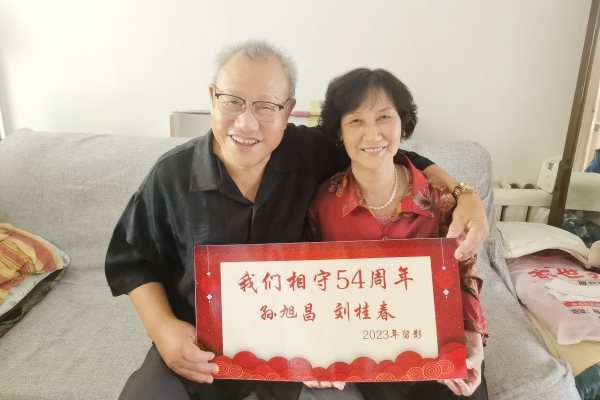 我们相守54周年
孙旭昌 刘桂春
2023年留影